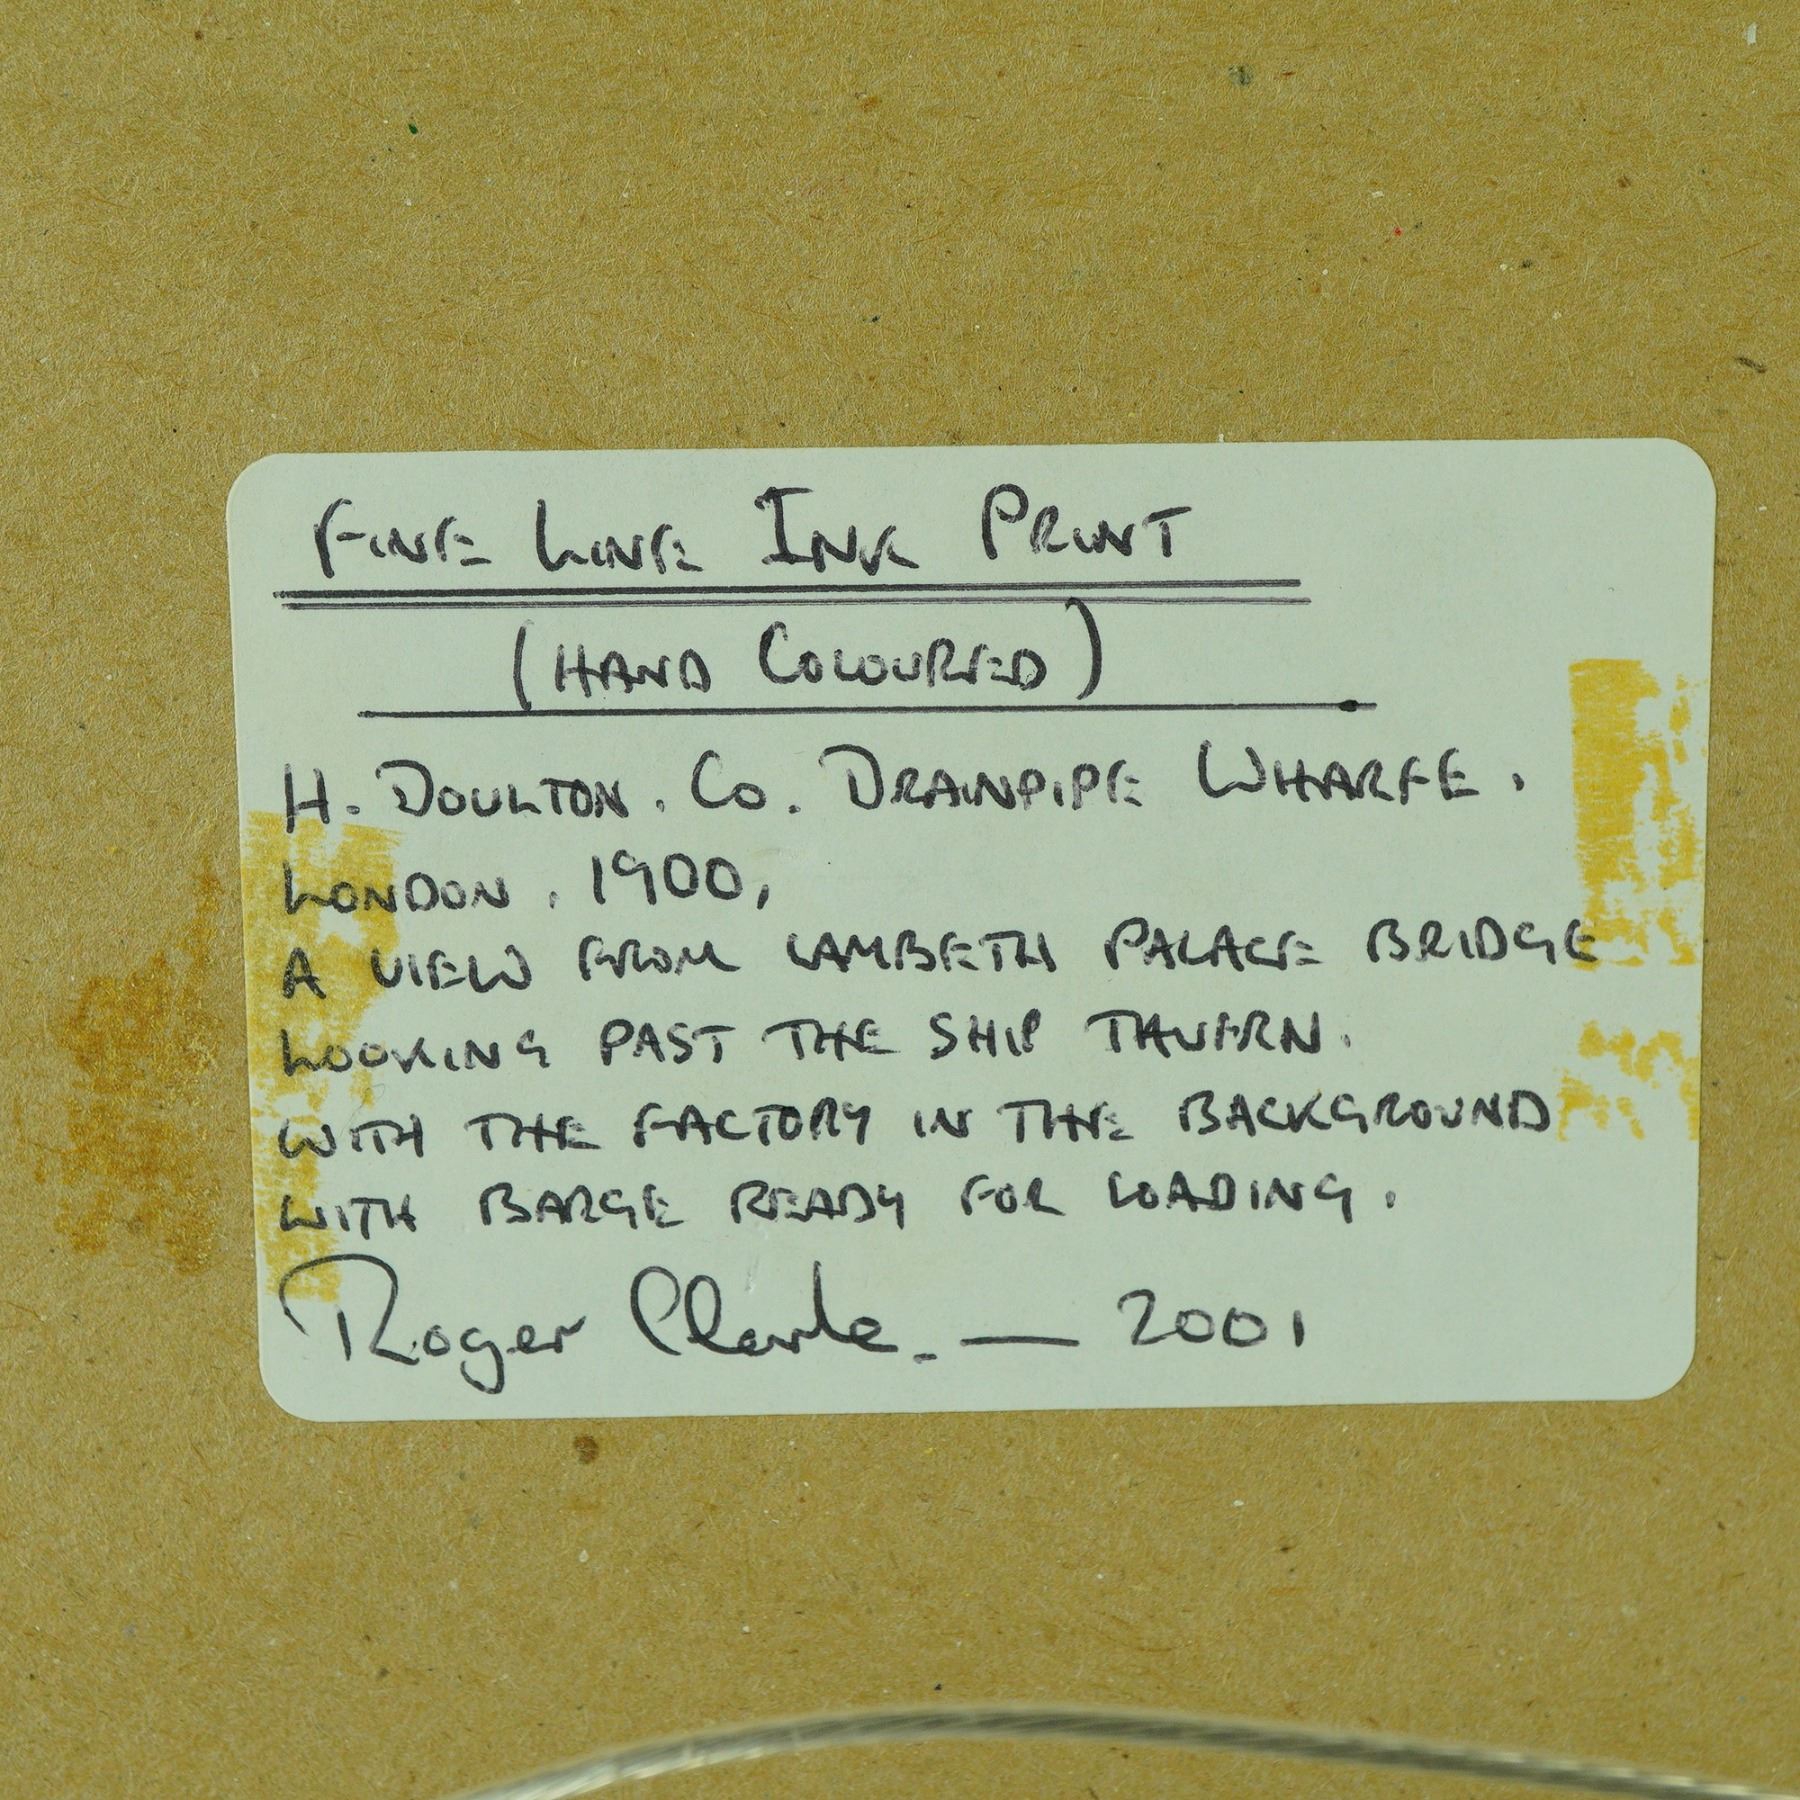 FINE LINE INK PRINT
(HAND COLOURED)
H. DOULTON. CO. DRAINPIPE WHARFE.
LONDON. 1900,
A VIEW FROM LAMBETH PALACE BRIDGE
LOOKING PAST THE SHIP TAVERN.
WITH THE FACTORY IN THE BACKGROUND
WITH BARGE READY FOR LOADING.
Roger Clarke. — 2001